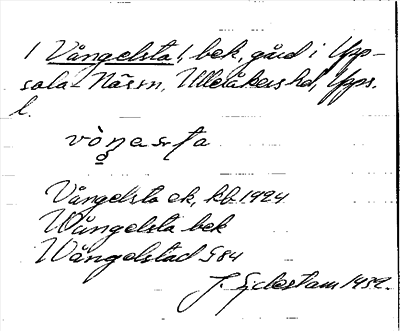 1 Vångelsta 1, bek, gård i Upp-
sala-Näs sn, Ulleråkers hd, Upps.
l.
vòŋasta
Vångelsta ek, kb 1924
Wångelsta bek
Wångelstad G 84
J. Sjdestam 1932.